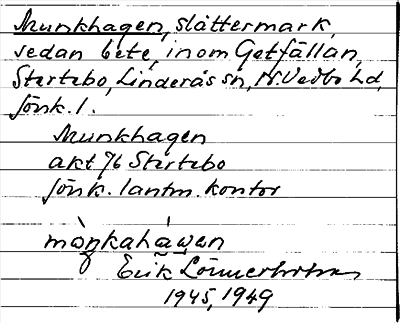 Munkhagen, slåttermark,
sedan bete, inom Getfällan,
Startebo, Linderås sn, N. Vedbo hd,
Jönk. l.
Munkhagen
akt 76 Startebo
Jönk. lantm. kontor
mòŋkaháwen
Erik
1945, 1949